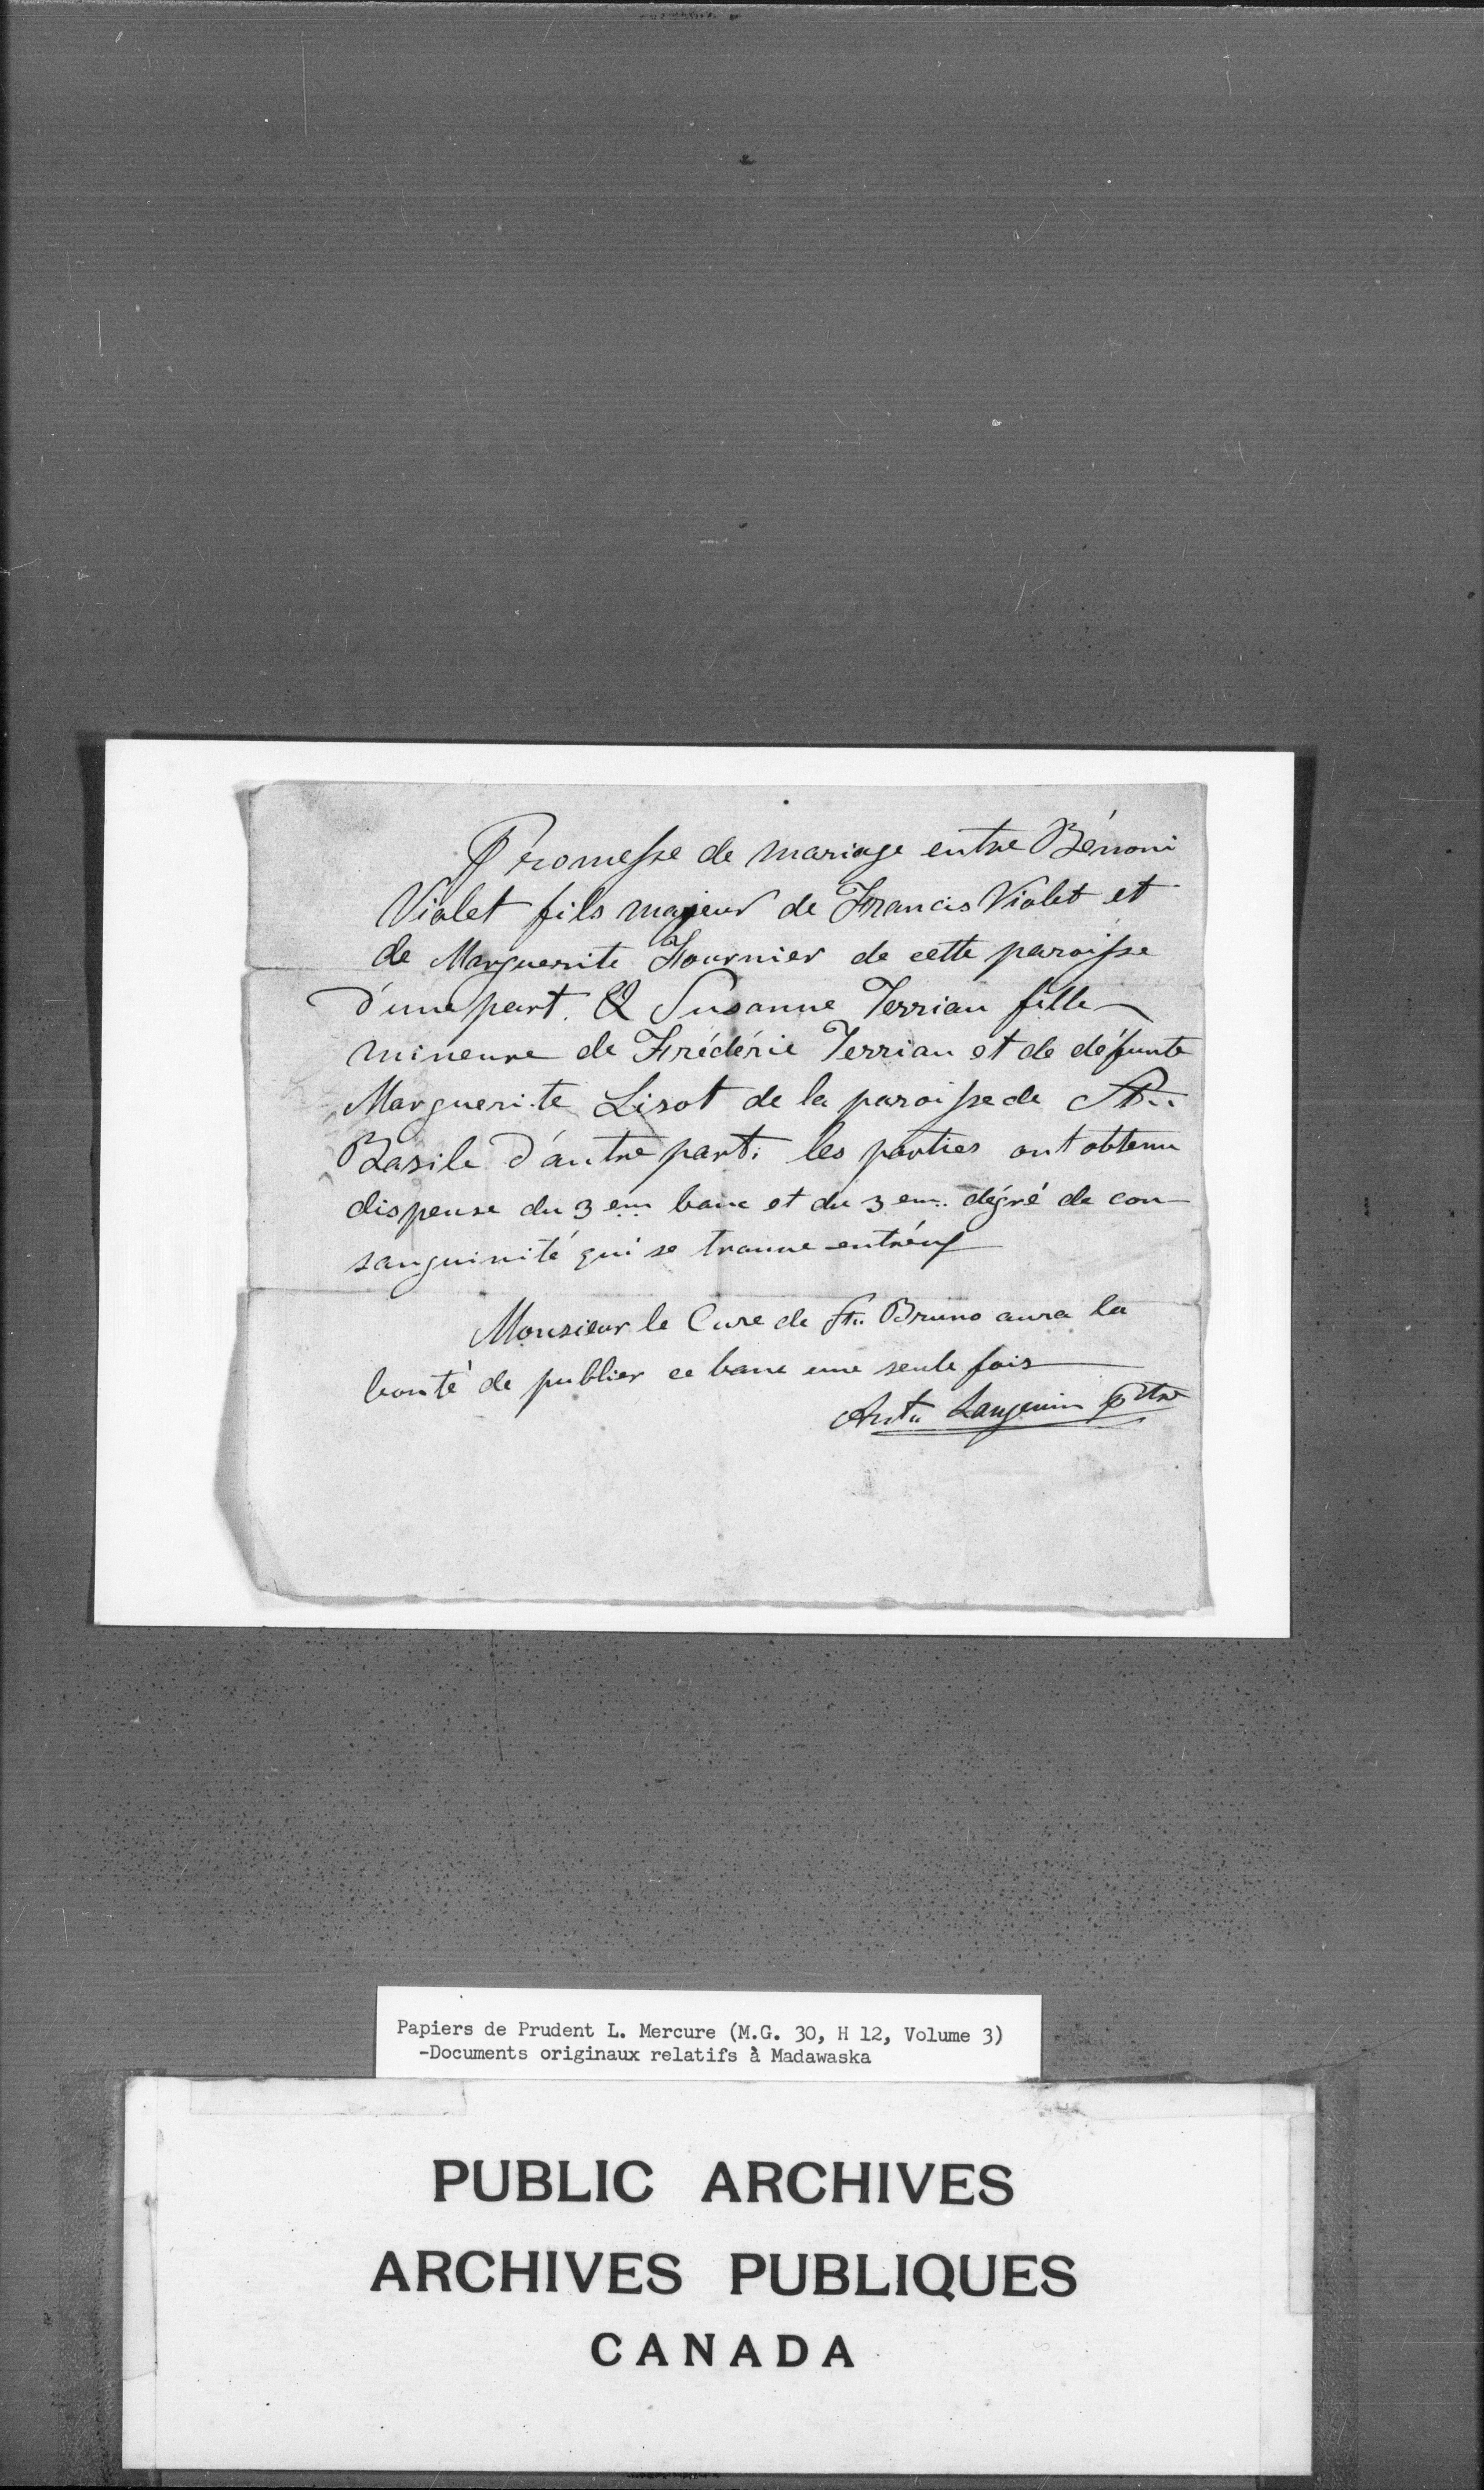 Promesse de mariage entre Bénoni
Violet fils majeur de Francis Violet et
de Marguerite Fournier de cette paroisse
d'une part. & Susanne Terriau fille
mineure de Frédéric Terriau et de défunte
Marguerite Lizot de la paroisse de St..
Bazile d'autre part. les parties ont obtenu
dispense du 3 em banc et du 3 em.. dégré de con-
sanguinité qui se trouve entr'eux
Monsieur le Cure de St.. Bruno aura la
bonté de publier ce banc une seule fois
Antn Langevin Ptre
Papiers de Prudent L. Mercure (M.G. 30, H 12, Volume 3)
-Documents originaux relatifs à Madawaska
PUBLIC ARCHIVES
ARCHIVES PUBLIQUES
CANADA